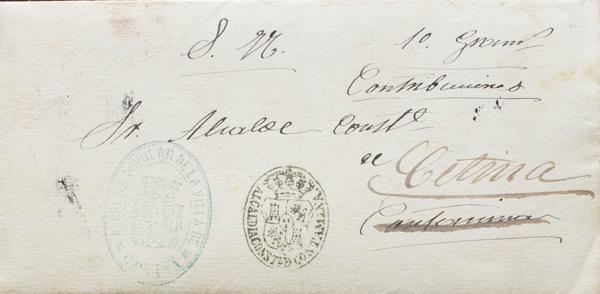 S. N.
1º. Gram.
Contribuciones
Sr. Alcalde Constl.
de
Cetina
Contamina
ALCALDIA CONSTL D CONTAMINA
POPULAR DE LA VILLA DE